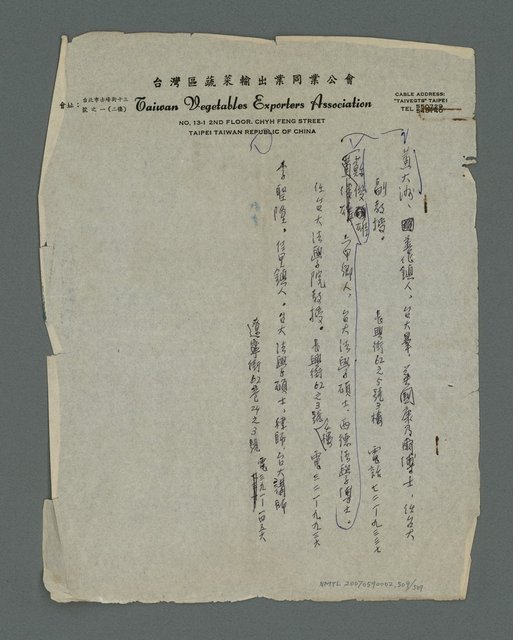 台灣區蔬菜輸出業同業公會
會址：台北市赤峰街十三號之一(二樓)
Taiwan Vegetables Exporters Association
NO. 13-1 2ND FLOOR. CHYH FENG STREET
TAIPEI TAIWAN REPUBLIC OF CHINA
CABLE ADDRESS:
"TAIVEGTS" TAIPEI
TEL
黃大洲、善化鎮人，台大畢，美國康乃爾博士，任台大
副教授。
長興街62之5號3樓 電話七二一九三三七
戴俊雄 六甲鄉人，台大法學碩士、西德法學博士。
任台大法學院教授。長興街62之3號 樓 電三二一九九三六
李聖隆。佳里鎮人。台大法學碩士，律師、台大講師
遼寧街62巷24之3號 電三九一一四三六
NMTL 20070590002, 509/509